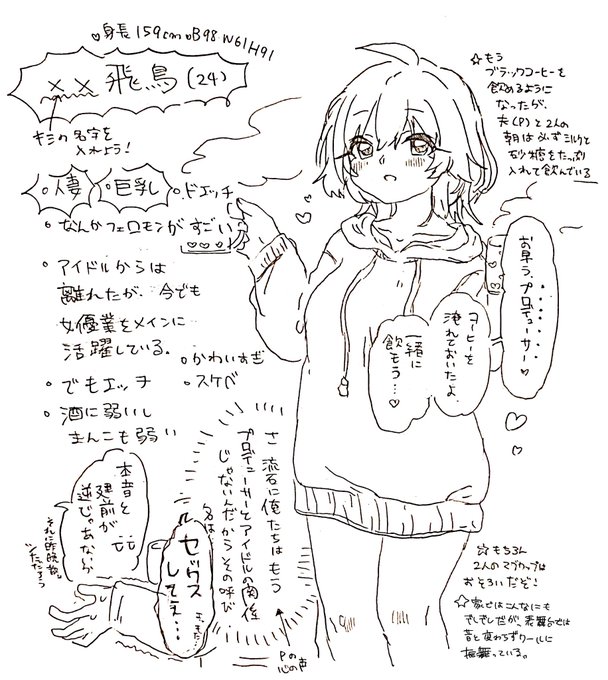 ♡身長159cm♡B98 W61 H91
×× 飛鳥(24)
キミの名字を
入れよう!
人妻
巨乳
ドエッチ
なんかフェロモンがすごい
♡♡♡
アイドルからは
離れたが、今でも
女優業をメインに
活躍している。
かわいすぎ
でもエッチ
スケベ
酒に弱いし
まんこも弱い
☆もう
ブラックコーヒーを
飲めるように
なったが、
夫(P)と2人の
朝は必ずミルクと
砂糖をたっぷり
入れて飲んでいる
お早う、プロデューサー♡
コーヒーを
淹れておいたよ、
一緒に
飲もう…♡
さ 流石に俺たちはもう
プロデューサーとアイドルの関係
じゃないんだからその呼び
名は…
セックス
してぇ…
本音と
建前が
逆じゃあないか
Pの
心の声
☆もちろん
2人のマグカップは
おそろいだぞ!
☆家ではこんなにも
昔と変わらずクールに
振舞っている。